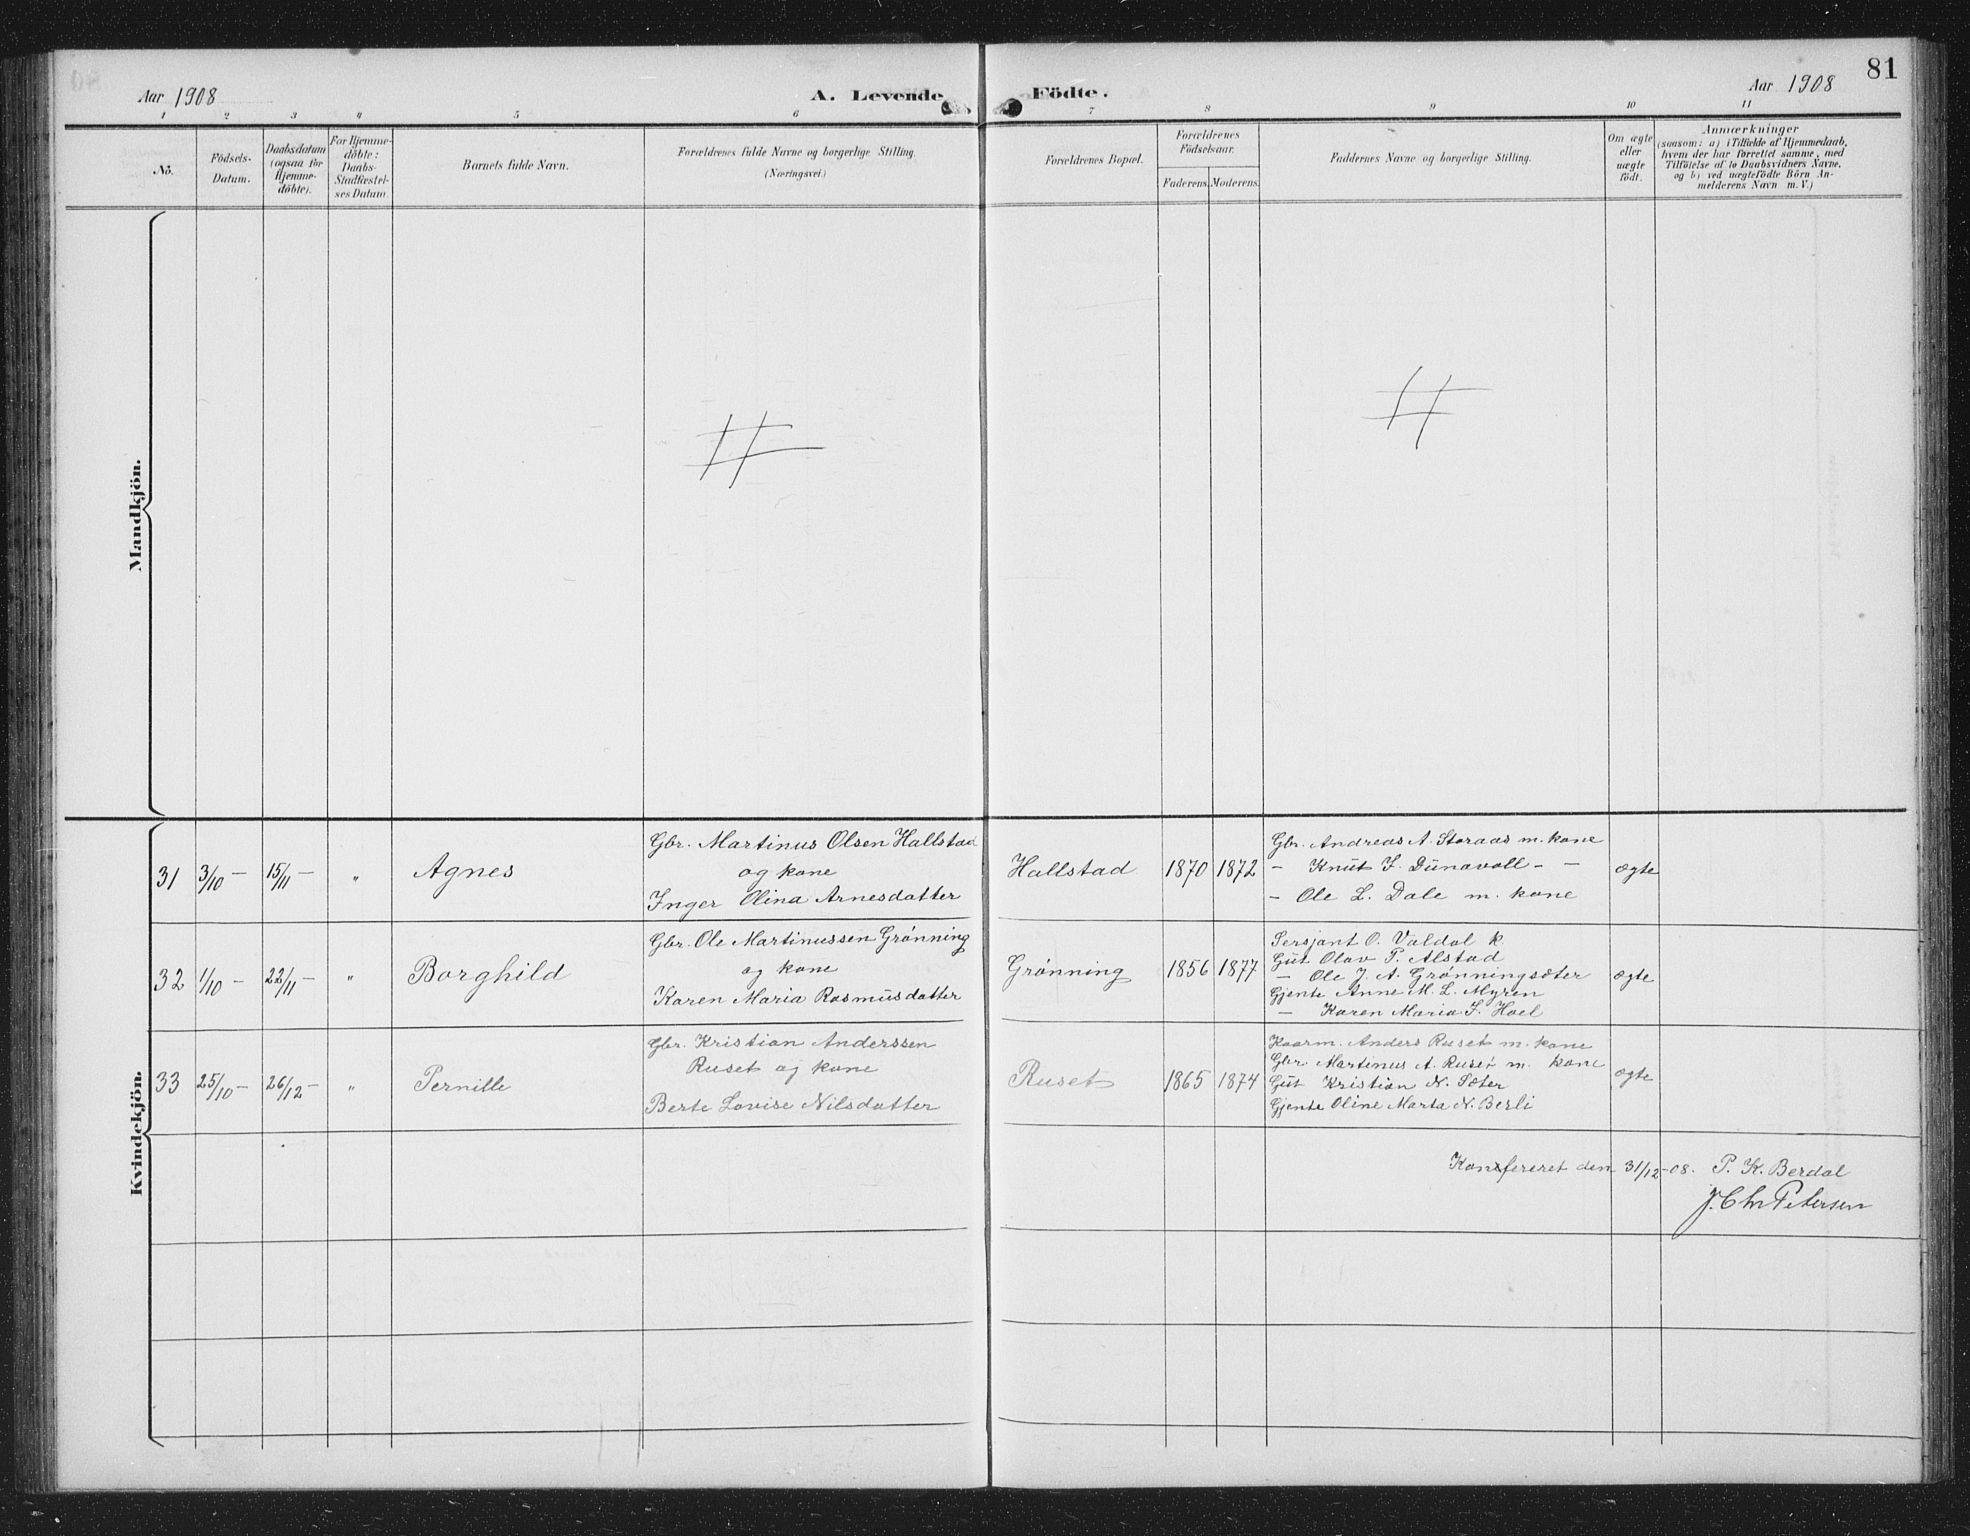 81
Aar 1908
A. Levende
Födte.
Aar 1908
1 2 3 4 5 6 7 8 9 10 11
No.
Födsels-
Datum.
Daabsdatum
(ogsaa for
Hjemme-
döbte).
For Hjemme-
döbte:
Daabs-
Stadfæstel-
ses Datum.
Barnets fulde Navn.
Forældrenes fulde Navne og borgerlige Stilling.
(Næringsvei.)
Forældrenes Bopæl.
Forældrenes
Födselsaar.
Faderens. Moderens.
Faddernes Navne og borgerlige Stilling.
Om ægte
eller
uægte
födt.
Anmærkninger
(saasom: a) i Tilfælde af Hjemmedaab,
hvem der har forrettet samme, med
Tilföielse af to Daabsvidners Navne,
og b) ved uægtefödte Börn An-
melderens Navn m. V.)
Mandkjön.
Kvindekjön.
31 3/10 – 15/11 – " Agnes
Gbr. Martinus Olsen Hallstad
og kone
Inger Olina Arnesdatter
Hallstad 1870 1872
Gbr. Andreas A. Storaas m. kone
– Knut J. Dunavoll – –
– Ole L. Dale m. kone
ægte
32 1/10 – 22/11 – " Borghild
Gbr. Ole Martinussen Grønning
og kone
Karen Maria Rasmusdatter
Grønning 1856 1877
Sersjant O. Valdal k.
Gut Olav P. Alstad
– Ole J. A. Grønningsæter
Gjente Anne M. L. Myren
– Karen Maria J. Hoel
ægte
33 25/10 – 26/12 – " Pernille
Gbr. Kristian Anderssen
Ruset og kone
Berte Lovise Nilsdatter
Ruset 1865 1874
Kaarm. Anders Ruset m. kone
Gbr. Martinus A. Ruset m. kone
Gut Kristian N. Sæter
Gjente Oline Marta N. Berli
ægte
Konfereret den 31/12-08. P. K. Berdal
J. Chr Petersen